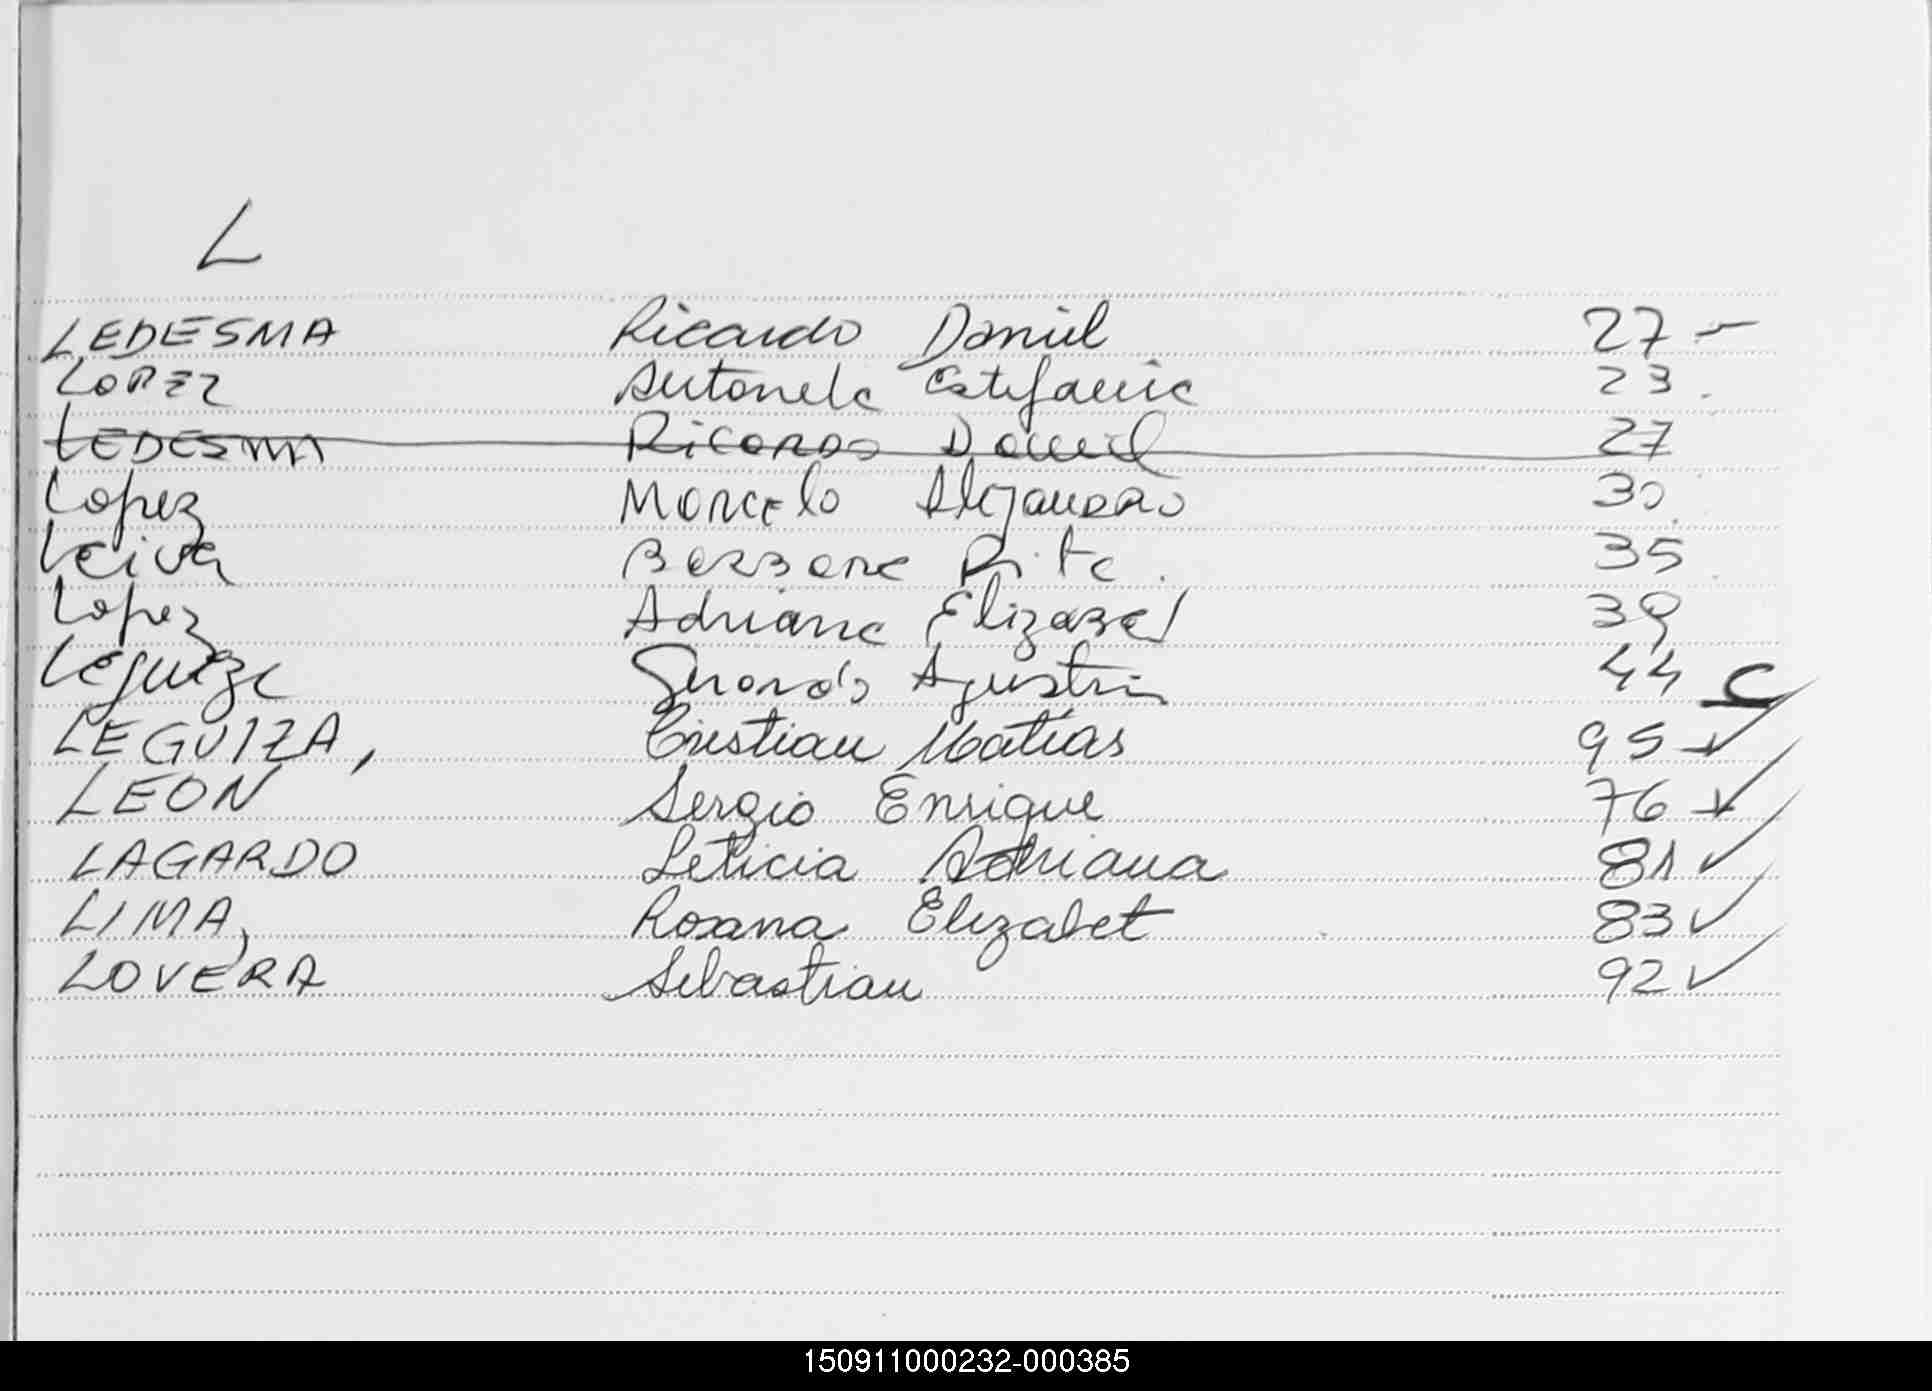 L
LEDESMA Ricardo Daniel 27 -
LOPEZ Antonela Estefania 23.
LEDESMA Ricardo Daniel 27
Lopez Marcelo Alejandro 30
Leiva Barbara Rita. 35
Lopez Adriana Elizabet 39
Leguiza Agustin 44 C
LEGUIZA, Cristian Matias 95 ✓
LEON Sergio Enrique 76 ✓
LAGARDO Leticia Adriana 81 ✓
LIMA, Roxana Elizabet 83 ✓
LOVERA Sebastian 92 ✓
150911000232-000385